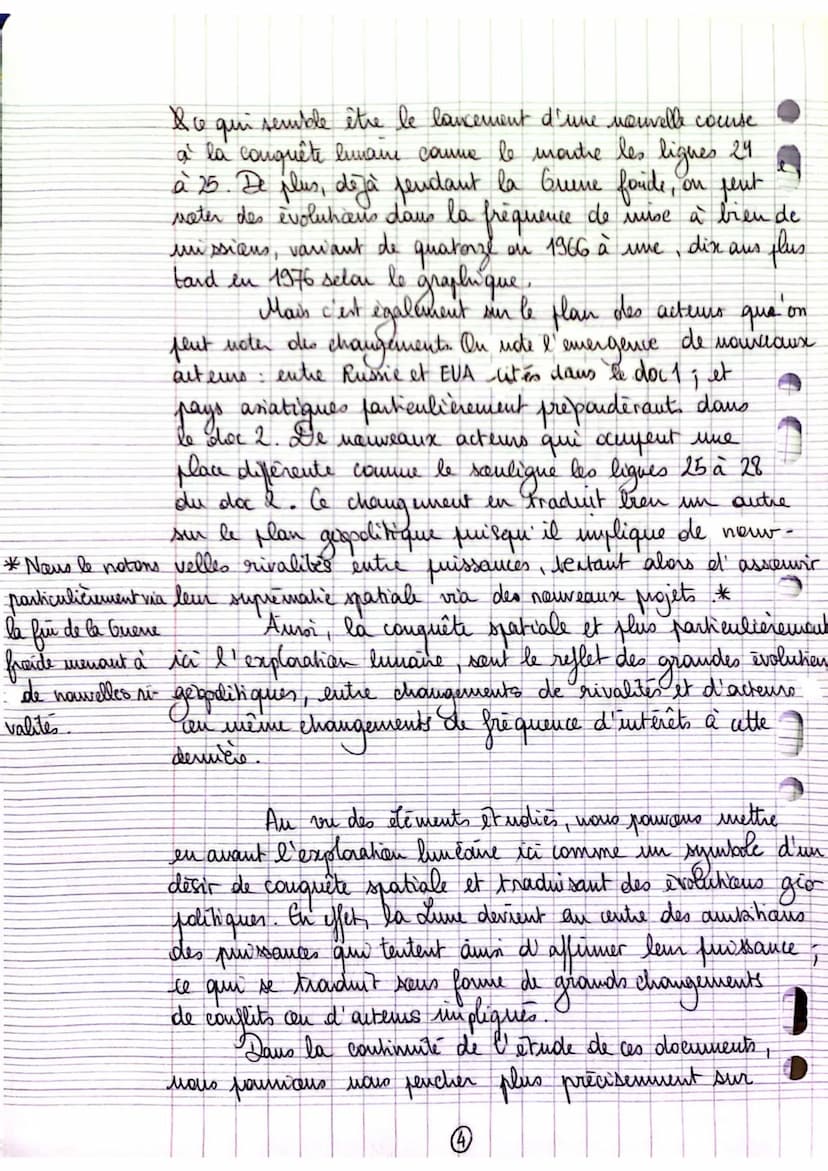 & ce qui semble être le lancement d'une nouvelle course
à la conquête lunaire comme le montre les lignes 24
à 25. De plus, déjà pendant la Guerre froide, on peut
noter des évolutions dans la fréquence de mise à bien de
missions, variant de quatorze en 1966 à une, dix ans plus
tard en 1976 selon le graphique.
Mais c'est également sur le plan des acteurs que'on
peut noter des changements. On note l'émergence de nouveaux
acteurs : entre Russie et EUA cités dans le doc 1 ; et
pays asiatiques particulièrement prépondérants dans
le doc 2. De nouveaux acteurs qui occupent une
place différente comme le souligne les lignes 25 à 28
du doc 2. Ce changement en traduit bien un autre
sur le plan géopolitique puisqu'il implique de nou-
velles rivalités entre puissances, tentant alors d'assouvir
leur suprématie spatiale via des nouveaux projets *
* Nous le notons
particulièrement via
la fin de la Guerre
froide menant à
de nouvelles ri-
valités.
Ainsi, la conquête spatiale et plus particulièrement
ici l'exploration lunaire, sont le reflet des grandes évolution
géopolitiques, entre changements de rivalités et d'acteurs
ou même changements de fréquence d'intérêts à cette
dernière.
Au vu des éléments étudiés, nous pouvons mettre
en avant l'exploration lunaire ici comme un symbole d'un
désir de conquête spatiale et traduisant des évolutions géo
politiques. En effet, la Lune devient au centre des ambitions
des puissances qui tentent ainsi d'affirmer leur puissance ;
ce qui se traduit sous forme de grands changements
de conflits ou d'acteurs impliqués.
Dans la continuité de l'étude de ces documents,
nous pourrions nous pencher plus précisemment sur
4